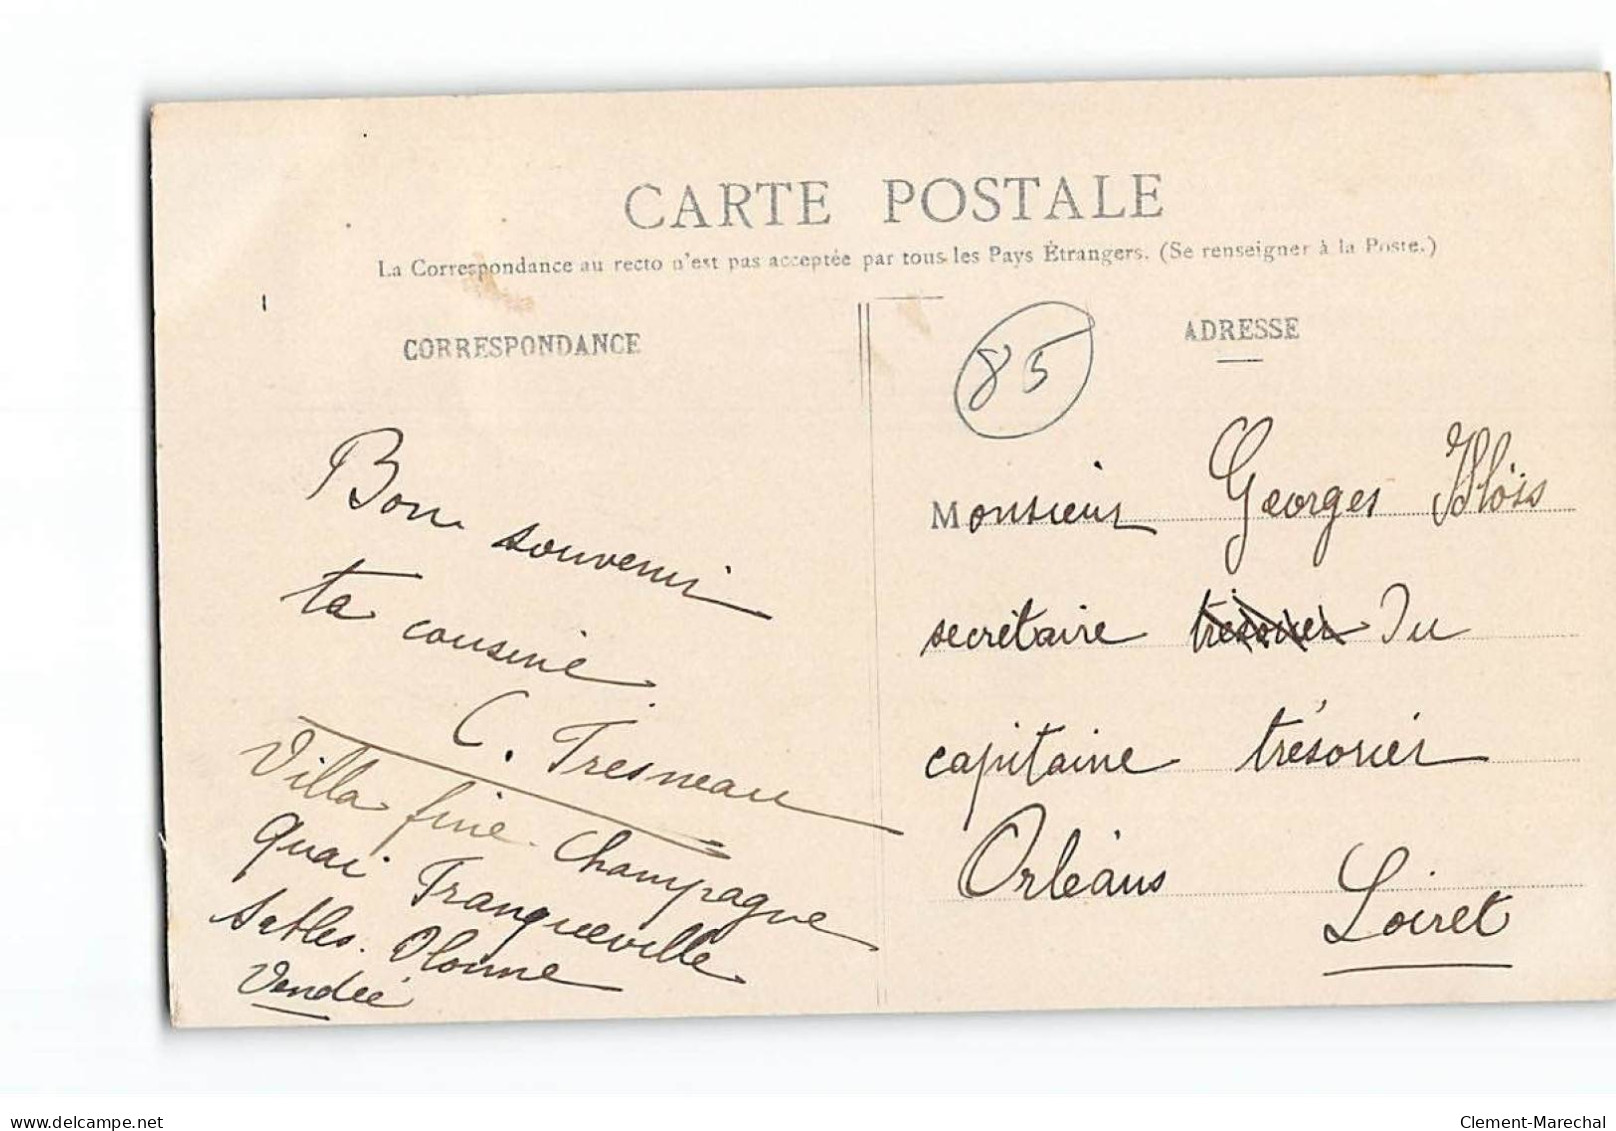 CARTE POSTALE
La Correspondance au recto n'est pas acceptée par tous les Pays Étrangers. (Se renseigner à la Poste.)
CORRESPONDANCE
Bon souvenir
ta cousine
C. Tresneau
Villa fine Champagne
Quai Franqueville
Sables. Olonne
Vendée
85
ADRESSE
Monsieur Georges Blois
secrétaire trésorier du
capitaine trésorier
Orléans
Loiret
Clement-Marechal